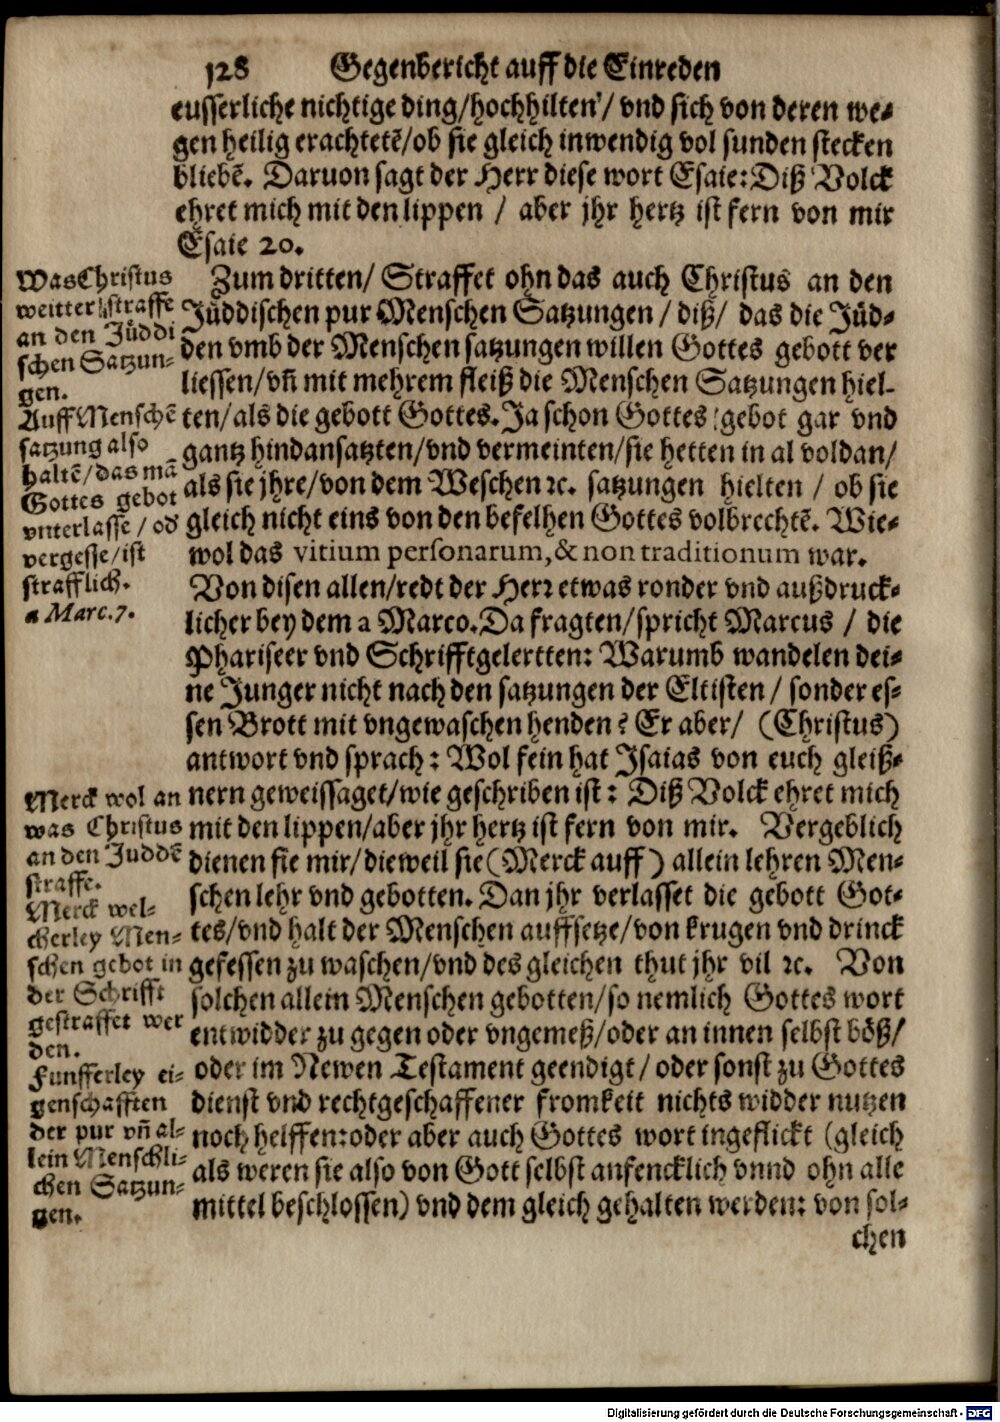 128 Gegenbericht auff die Einreden
eusserliche nichtige ding/hochhilten/ vnd sich von deren we-
gen heilig erachtetẽ/ob sie gleich inwendig vol sunden stecken
bliebẽ. Daruon sagt der Herr diese wort Esaie: Diß Volck
ehret mich mit den lippen / aber jhr hertz ist fern von mir
Esaie 20.
Zum dritten/ Straffet ohn das auch Christus an den
Jüddischen pur Menschen Satzungen / diß/ das die Jüd-
den vmb der Menschen satzungen willen Gottes gebott ver
liessen/vñ mit mehrem fleiß die Menschen Satzungen hiel-
ten/als die gebott Gottes. Ja schon Gottes gebot gar vnd
gantz hindansatzten/vnd vermeinten/sie hetten in al voldan/
als sie jhre/von dem Weschen ꝛc. satzungen hielten / ob sie
gleich nicht eins von den befelhen Gottes volbrechtẽ. Wie-
wol das vitium personarum, & non traditionum war.
Von disen allen/redt der Herꝛ etwas ronder vnd außdruck-
licher bey dem a Marco. Da fragten/spricht Marcus / die
Phariseer vnd Schrifftgelertten: Warumb wandelen dei-
ne Junger nicht nach den satzungen der Eltisten / sonder es-
sen Brott mit vngewaschen henden? Er aber/ (Christus)
antwort vnd sprach: Wol fein hat Isaias von euch gleiß-
nern geweissaget/wie geschriben ist: Diß Volck ehret mich
mit den lippen/aber jhr hertz ist fern von mir. Vergeblich
dienen sie mir/dieweil sie (Merck auff) allein lehren Men-
schen lehr vnd gebotten. Dan jhr verlasset die gebott Got-
tes/vnd halt der Menschen auffsetze/von krugen vnd drinck
gefessen zu waschen/vnd des gleichen thut jhr vil ꝛc. Von
solchen allein Menschen gebotten/so nemlich Gottes wort
entwidder zu gegen oder vngemeß/oder an innen selbst böß/
oder im Newen Testament geendigt/ oder sonst zu Gottes
dienst vnd rechtgeschaffener fromkeit nichts widder nutzen
noch helffen: oder aber auch Gottes wort ingeflickt (gleich
als weren sie also von Gott selbst anfencklich vnnd ohn alle
mittel beschlossen) vnd dem gleich gehalten werden: von sol-
chen
Was Christus
weitter straffe
an den Jüddi
schen Satzun-
gen.
Auff Menschẽ
satzung also
haltẽ/das mã
Gottes gebot
vnterlasse / oď
vergesse/ist
strafflich.
a Marc. 7.
Merck wol an
was Christus
an den Juddẽ
straffe.
Merck wel-
cherley Men-
schen gebot in
der Schrifft
gestraffet wer
den.
Funfferley ei-
genschafften
der pur vñ al-
lein Menschli-
chen Satzun-
gen.
Digitalisierung gefördert durch die Deutsche Forschungsgemeinschaft - DFG